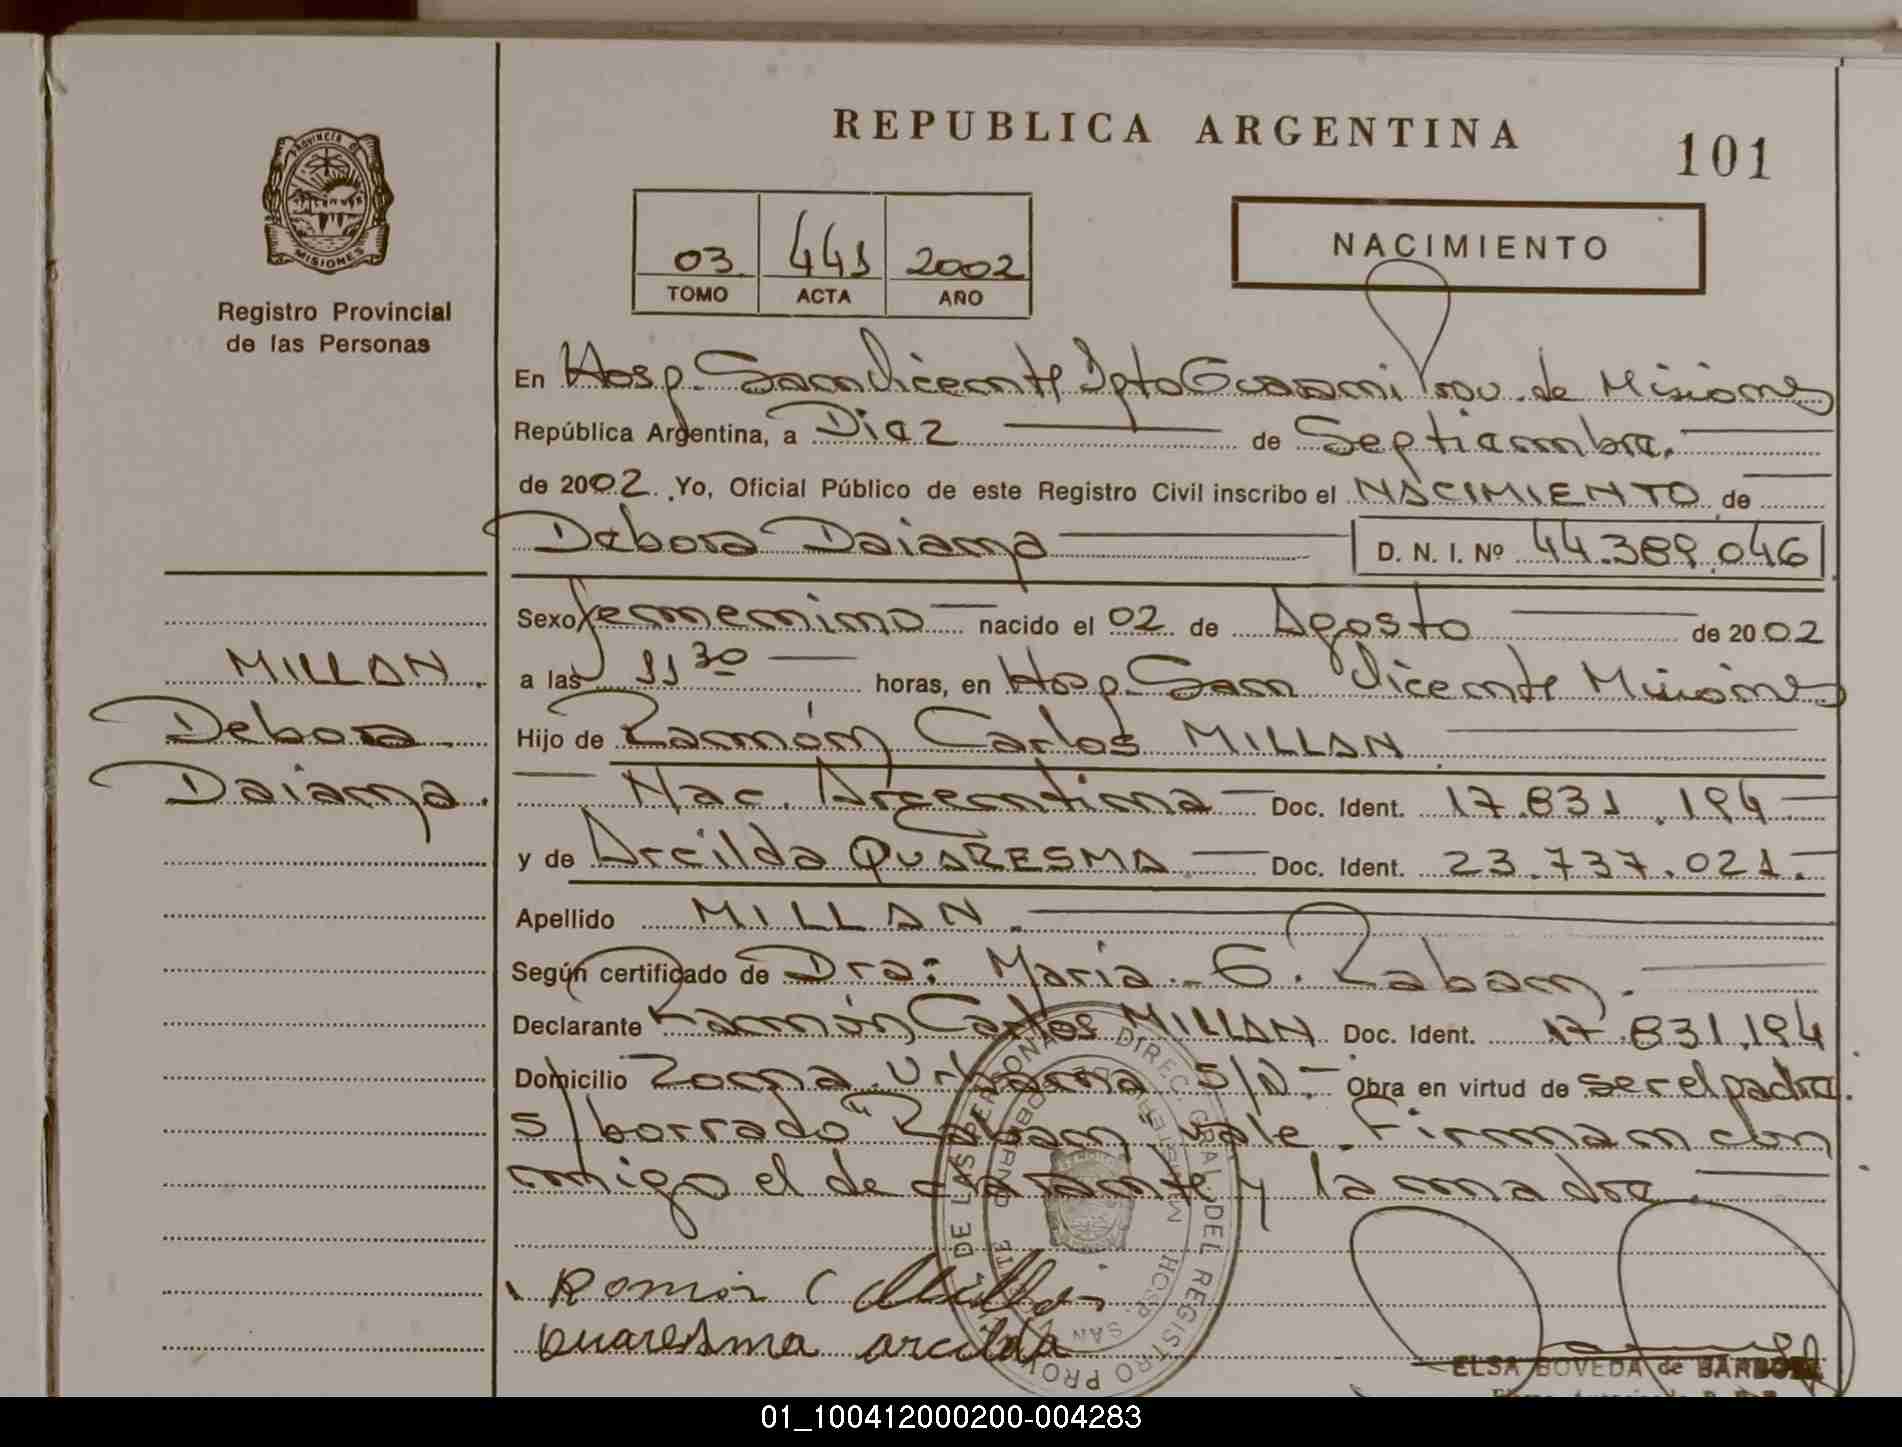 REPUBLICA ARGENTINA
101
PROVINCIA DE
MISIONES
Registro Provincial
de las Personas
03 441 2002
TOMO ACTA AÑO
NACIMIENTO
En Hosp. San Vicente Dpto Guarani Prov. de Misiones
República Argentina, a Diez de Septiembre.
de 2002. Yo, Oficial Público de este Registro Civil inscribo el NACIMIENTO de
Debora Daiana D. N. I. Nº 44.389.046
Sexo femenino nacido el 02 de Agosto de 2002
a las 11 30 horas, en Hosp. San Vicente Misiones
MILLAN.
Debora
Daiana.
Hijo de Ramón Carlos MILLAN
Nac. Argentina Doc. Ident. 17.831.194
y de Arcilda QUARESMA Doc. Ident. 23.737.021.
Apellido MILLAN.
Según certificado de Dra: Maria. G. Raban.
Declarante Ramón Carlos MILLAN Doc. Ident. 17.831.194
Domicilio Zona Urbana S/N. Obra en virtud de ser el padre.
S/borrado "Raban" vale. Firman con
migo el declarante y la madre.
Ramón C Millan
Quaresma arcilda
DIREC. GRAL. DEL REGISTRO PROV. DE LAS PERSONAS
HOSP. SAN
ELSA BOVEDA de BARBOZA
01_100412000200-004283